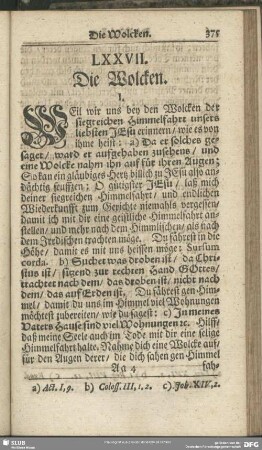 Die Wolcken. 375
LXXVII.
Die Wolcken.
1.
WEil wir uns bey den Wolcken der
siegreichen Himmelfahrt unsers
liebsten JEsu erinnern/ wie es von
ihme heist: a) Da er solches ge-
saget/ ward er aufgehaben zusehens/ und
eine Wolcke nahm ihn auf für ihren Augen;
So kan ein gläubiges Hertz billich zu JEsu also an-
dächtig seufftzen; O gütigster JEsu/ laß mich
deiner siegreichen Himmelfahrt/ und endlichen
Wiederkunfft zum Gerichte niemahls vergessen/
damit ich mit dir eine geistliche Himmelfahrt an-
stellen/ und mehr nach dem Himmlischen/ als nach
dem Irrdischen trachten möge. Du fährest in die
Höhe/ damit es mit uns heissen möge: Sursum
corda. b) Suchet was droben ist/ da Chri-
stus ist/ sitzend zur rechten Hand GOttes/
trachtet nach dem/ das droben ist/ nicht nach
dem/ das auf Erden ist. Du fährest gen Him-
mel/ damit du uns im Himmel viel Wohnungen
möchtest zubereiten/ wie du sagest: c) In meines
Vaters Hause sind viel Wohnungen ꝛc. Hilff/
daß meine Seele auch im Tode mit dir eine selige
Himmelfahrt halte. Nahme dich eine Wolcke auf/
für den Augen derer/ die dich sahen gen Himmel
Aa 4 fah-
a) Act. I, 9. b) Coloss. III, 1, 2. c) Joh. XIV, 2.
SLUB